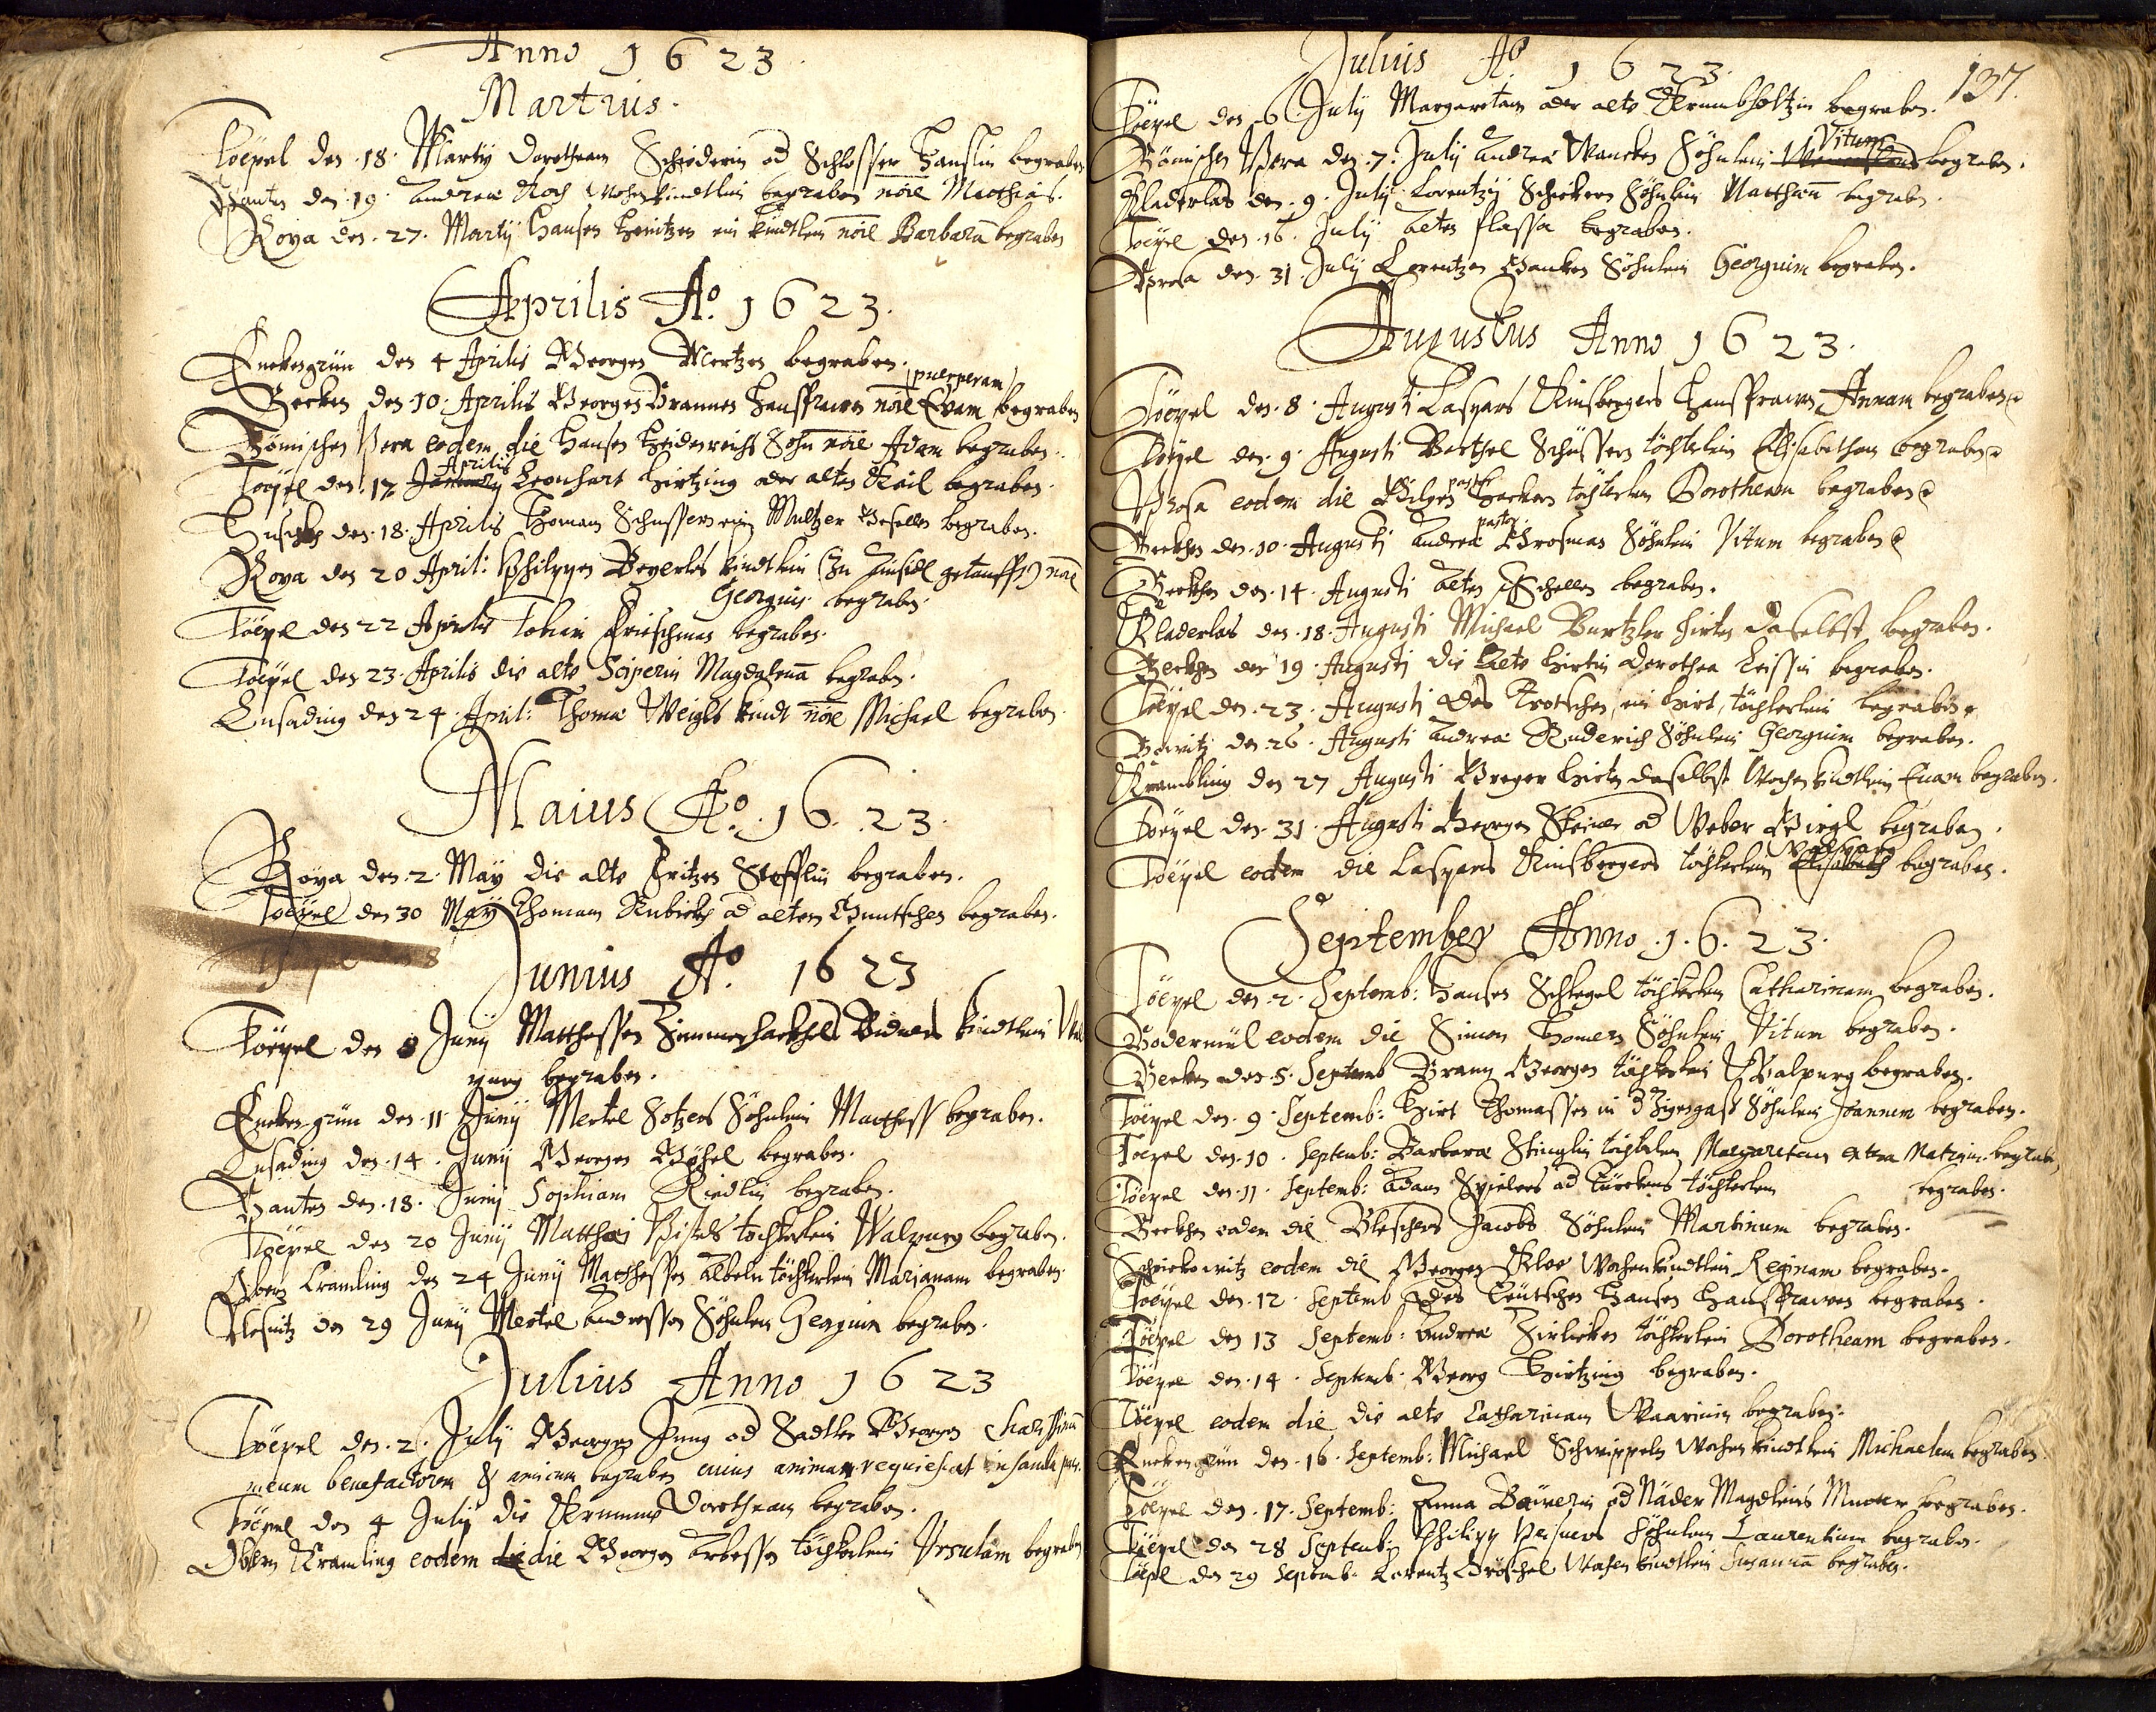 Anno 1623.
Martius.
Toepel den .18. Martij Dorotheam Schröderin od Schlosser Hanslin begraben
Santen den .19. Andrea Koch Wochenkindtlein begraben nōīe Matthias.
Roya den .27. Martij Hansen ein kindtlein nōīe Barbarā begraben
Aprilis Aō. 1623.
Enckengrün den 4 Aprilis Georgen Mertzen begraben.
Becken den .10. Aprilis Georgen Braunen Hauffrawen nōīe Evam (puerperam) begraben
Bömischen eodem die Hansen Heidenreichs Sohn nōīe Adam begraben.
Toepel den .17. Aprilis Leonhart Hirtzing oder alten Keil begraben.
den .18. Aprilis Thomam Schusters ein Multzer Gesellen begraben.
Roya den 20 April: Philippen Beyerles kindtlein (zu Einsidl getaufft) nōīe
Georgius begraben.
Toepel den 22 Aprilis Tobiam begraben.
Toepel den 23. Aprilis die alte Magdalenā begraben.
Lusading den 24. April: Thoma Weigls kindt nōīe Michael begraben.
Maius Aō. 1623.
Roya den .2. May die alte Fritzen Stefflin begraben.
Toepel den 30 May Thomam Kubick od alten begraben.
Junius Aō. 1623
Toepel den 8 Junij Matthessen kindtlein Wal
purg begraben.
Enckengrün den .11 Junij Mertel Sötzers Söhnlein Mathess begraben.
Lusading den .14. Junij Georgen begraben.
Santen den .18. Junij Sophiam Riedlin begraben.
Toepel den 20 Junij Matthaei töchterlein Walpurg begraben.
Ober Cramling den 24 Junij Matthessen Albeln töchterlein Marjanam begraben.
den 29 Junij Mertel Andressen Söhnlein Georgium begraben.
Julius Anno 1623
Toepel den .2. Julij Georgen Jung od Sadtler Georgen charissimū
meum benefactorem & amicum begraben cuius anima requiescat in sancta pace.
Toepel den 4 Julij die Krumme Dorotheam begraben.
Obern Kramling eodem die Georgen Arbesses töchterlein Ursulam begraben
Julius Aō 1623.
137.
Toepel den .6. Julij Margaretam oder alte Krumbholtzin begraben.
Bömischen den .7. Julij Andrea Wancken Söhnlein Vitum begraben.
Pladerlas den .9. Julij Lorentzen Schickers Söhnlein Matthaeū begraben.
Toepel den .16. Julij Alten flassa begraben.
Prosa den .31. Julij Lorentzen Söhnlein Georgium begraben.
Augustus Anno 1623.
Toepel den .8. Augusti Caspars Kinsbergers Hauffrawen Annam begraben
Toepel den .9. Augusti Barthel Schusters töchterlein Elisabetham begraben
Prosa eodem die töchterlein Dorotheam begraben
Beckhen den .10. Augusti Andrea pastor. Grosman Söhnlein Vitum begraben
Beckhen den .14. Augusti Alten Schellen begraben.
Kladerlas den .18. Augusti Michael Burtzler Hirten daselbst begraben.
Beckhen den 19. Augusti die alte Hirtin Dorothea begraben.
Toepel den .23. Augusti des Trotschen, ein Hirt, töchterlein begraben
den .26. Augusti Andrea Ruderich Söhnlein Georgium begraben.
Krambling den 27 Augusti Greger Hirten daselbst Wochenkindtlein Euam begraben.
Toepel den .31. Augusti Georgen Steiner od Weber Girgl begraben.
Toepel eodem die Caspars Kinsbergers töchterlein begraben.
September Anno .1.6.23.
Toepel den .2. Septemb: Hansen Schlegel töchterlein Catharinam begraben.
Bodermül eodem die Simon Söhnlein Vitum begraben.
Becken den .5. Septemb Braun Georgen töchterlein Walpurg begraben.
Toepel den .9. Septemb: Hirt Thomassen in d Söhnlein Joannem begraben.
Toepel den .10. Septemb: Barbara Stinglin töchterlein Margaretam extra Matrim. begraben
Toepel den .11. Septemb: Adam Spielers od töchterlein begraben.
Beckhen eodem die Jacobs Söhnlein Martinum begraben.
eodem die Georgen Kloe Wochenkindtlein Reginam begraben.
Toepel den .12. Septemb des Teutschen Hansen Hauffrawen begraben.
Toepel den 13 Septemb: Andrea Zirlicken töchterlein Dorotheam begraben.
Toepel den .14. Septemb: Georg Hirtzing begraben.
Toepel eodem die die alte Catharinam begraben.
Enckengrün den .16. Septemb: Michael Schwippeln Wochenkindtlein Michaelem begraben.
Toepel den .17. Septemb: Anna od Näder Magdleins Mutter begraben.
Toepel den 28 Septemb: Philipp Söhnlein Laurentium begraben.
Toepel den 29 Septemb: Lorentz Gröschel Wochenkindtlein Susannā begraben.